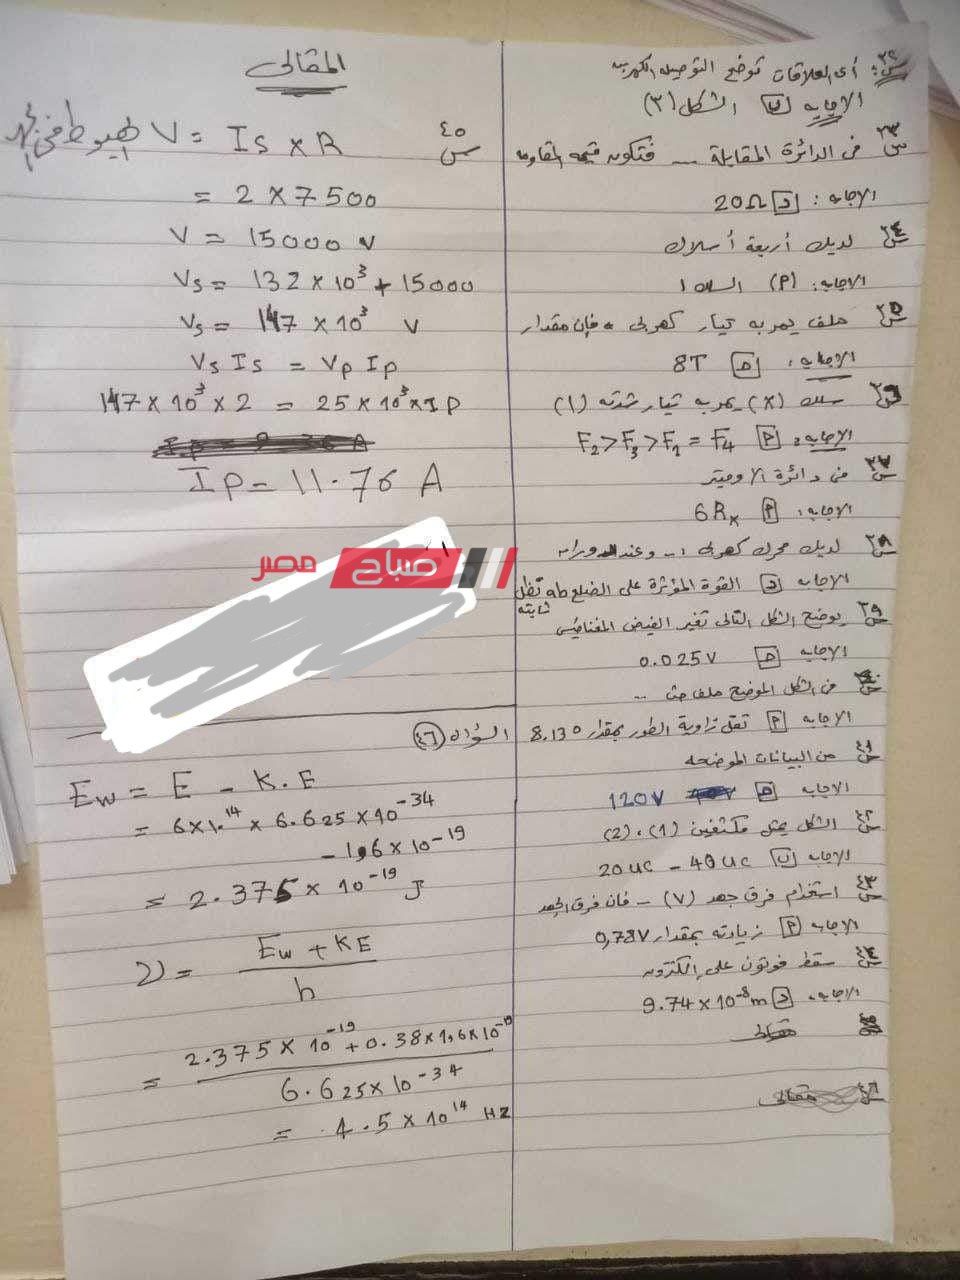 س٣٢: أى العلاقات توضح التوصيلية الكهربية
الاجابه ب الشكل (٣)
س٣٣ فى الدائرة المقابلة ... فتكون قيمة المقاومة
الاجابه: د 20Ω
س٣٤ لديك أربعة أسلاك
الاجابه: (P) السلك 1
س٣٥ ملف يمر به تيار كهربى فإن مقدار
الاجابه: 8T
س٣٦ سلك (X) يمر به تيار شدته (1)
الاجابه: P F₂>F₃>F₁ = F₄
س٣٧ فى دائرة الاوميتر
الاجابه: P 6Rx
س٣٨ لديك محرك كهربى ... وعند الدوران
الاجابه د القوة المؤثرة على الضلع تظل ثابته
س٣٩ يوضح الشكل التالى تغير الفيض المغناطيسى
الاجابه 0.025V
س٤٠ فى الشكل الموضح ملف حث ...
الاجابه P تقل زاوية الطور بمقدار 8.13°
س٤١ من البيانات الموضحه
الاجابه 120V
س٤٢ الشكل يمثل مكثفين (1)، (2)
الاجابه ب 20uc - 40uc
س٤٣ استخدام فرق جهد (V) - فان فرق الجهد
الاجابه P زيادته بمقدار 0,78V
س٤٤ سقط فوتون على إلكترون
الاجابه: د 9.74×10⁻⁸m
مقالى
مقالى
المقالى
س٤٥ V = Is × R الهبوط فى
= 2 × 7500
V = 15000 v
Vs = 132 × 10³ + 15000
Vs = 147 × 10³ V
Vs Is = Vp Ip
147 × 10³ × 2 = 25 × 10³ × Ip
Ip = 11.76 A
صباح مصر
السؤال (٤٦)
Ew = E - K.E
= 6×10¹⁴ × 6.625×10⁻³⁴
- 1,6 × 10⁻¹⁹
= 2.375 × 10⁻¹⁹ J
ν = Ew + KE
h
= 2.375 × 10⁻¹⁹ + 0.38 × 1,6 × 10⁻¹⁹
6.625 × 10⁻³⁴
= 4.5 × 10¹⁴ Hz